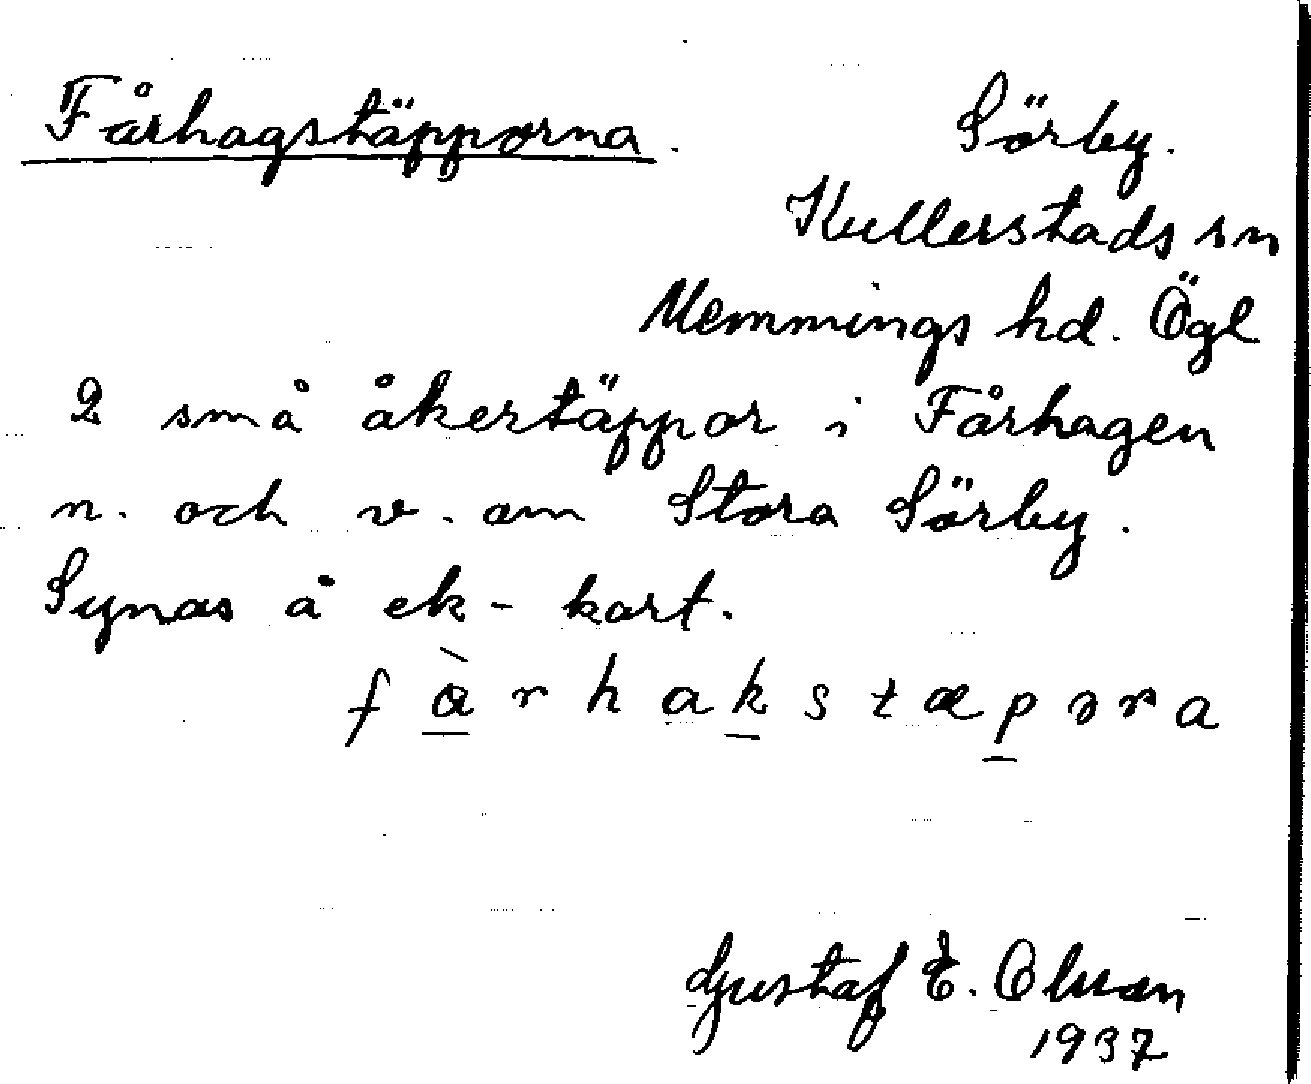 Fårhagstäpporna. Sörby.
Kullerstads sn
Memmings hd. Ögl
2 små åkertäppor i Fårhagen
n. och v. om Stora Sörby.
Synas å ek-kart.
fàrhakstæpɔra
Gustaf E. Olsson
1937